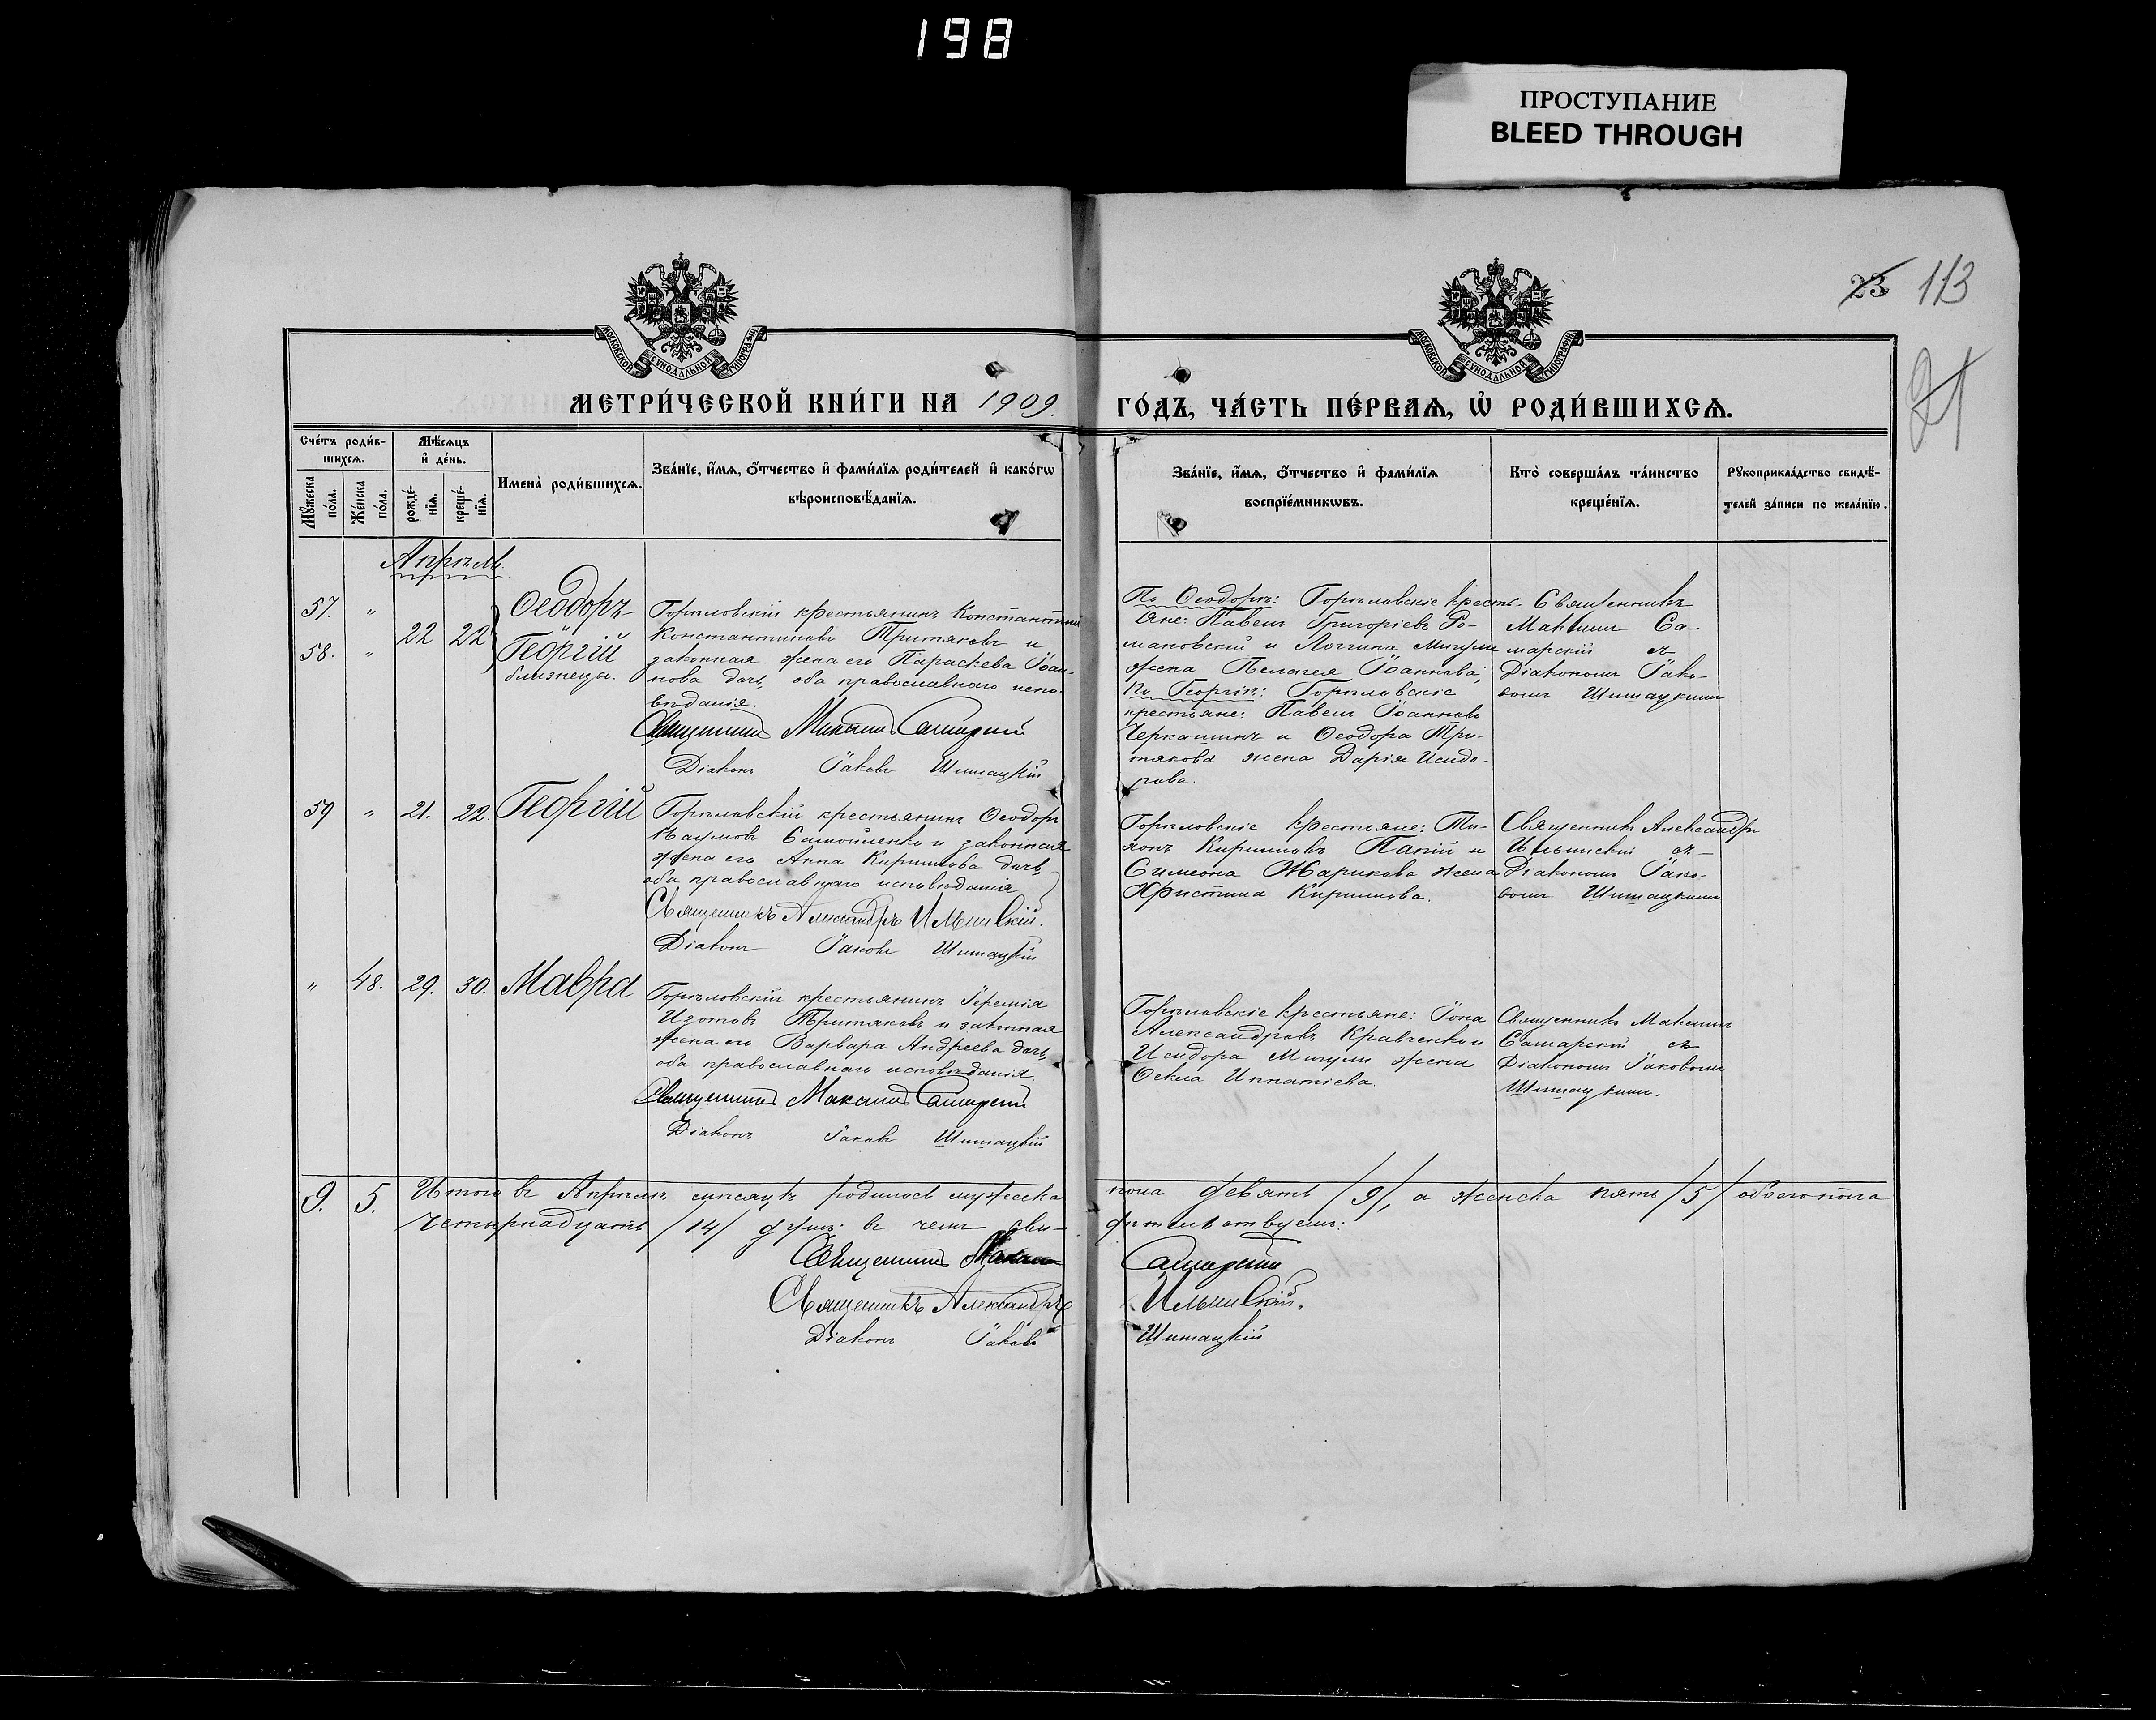 198
ПРОСТУПАНИЕ
BLEED THROUGH
23 113
21
МОСКОВСКОЙ СѴНОДАЛЬНОЙ ТИПОГРАФІИ
МОСКОВСКОЙ СѴНОДАЛЬНОЙ ТИПОГРАФІИ
МЕТРИ́ЧЕСКОЙ КНИ́ГИ НА 1909. ГО́ДЪ, ЧА́СТЬ ПЕ́РВАѦ, Ѡ҆ РОДИ́ВШИХСѦ.
Сче́тъ роди́в-
шихсѧ.
Мꙋ́жеска по́ла.
Же́нска по́ла.
Мѣ́сѧцъ
и҆ де́нь.
рожде́-
нїѧ.
креще́-
нїѧ.
Имена̀ роди́вшихсѧ.
Зва́нїе, и҆́мѧ, ѻ҆́тчество и҆ фами́лїѧ роди́телей и҆ како́гѡ
вѣроисповѣ́данїѧ.
Зва́нїе, и҆́мѧ, ѻ҆́тчество и҆ фами́лїѧ
воспрїе́мникѡвъ.
Кто̀ соверша́лъ та́инство
креще́нїѧ.
Рꙋкоприкла́дство свидѣ́-
телей за́писи по жела́нїю.
Апрѣль.
57. "
58. "
22 22
Ѳеодоръ
Георгій
близнецы.
Горѣловскій крестьянинъ Константинъ
Константиновъ Притяковъ и
законная жена его Параскева Іоан-
нова дочь, оба православнаго испо-
вѣданія.
Священникъ Максимъ Самарскій
Діаконъ Іаковъ Шишацкій
По Ѳеодорѣ: Горѣловскіе кресть-
яне: Павелъ Григоріевъ Ро-
мановскій и Логгина Мигули
жена Пелагея Іоаннова;
По Георгіѣ: Горѣловскіе
крестьяне: Павелъ Іоанновъ
Черкашинъ и Ѳеодора При-
тякова жена Дарія Исидо-
рова.
Священникъ
Максимъ Са-
марскій съ
Діакономъ Іако-
вомъ Шишацкимъ
59 " 21. 22. Георгій
Горѣловскій крестьянинъ Ѳеодоръ
Наумовъ Самойленко и законная
жена его Анна Кириллова дочь,
оба православнаго исповѣданія
Священникъ Александръ Ильинскій.
Діаконъ Іаковъ Шишацкій
Горѣловскіе крестьяне: Ти-
хонъ Кирилловъ Папій и
Симеона Жарикова жена
Христина Кириллова.
Священникъ Александръ
Ильинскій съ
Діакономъ Іако-
вомъ Шишацкимъ
" 48. 29. 30. Мавра
Горѣловскій крестьянинъ Іеремія
Изотовъ Притяковъ и законная
жена его Варвара Андреева дочь,
оба православнаго исповѣданія.
Священникъ Максимъ Самарскій
Діаконъ Іаковъ Шишацкій
Горѣловскіе крестьяне: Іона
Александровъ Кравченко и
Исидора Мигули жена
Ѳекла Игнатіева.
Священникъ Максимъ
Самарскій съ
Діакономъ Іаковомъ
Шишацкимъ.
9. 5. Итого въ Апрѣлѣ мѣсяцѣ родилось мужеска пола девять /9/, а женска пять /5/ обоего пола
четырнадцать /14/ душъ: въ чемъ сви-дѣтельствуемъ:
Священникъ Максимъ Самарскій
Священникъ Александръ Ильинскій.
Діаконъ Іаковъ Шишацкій